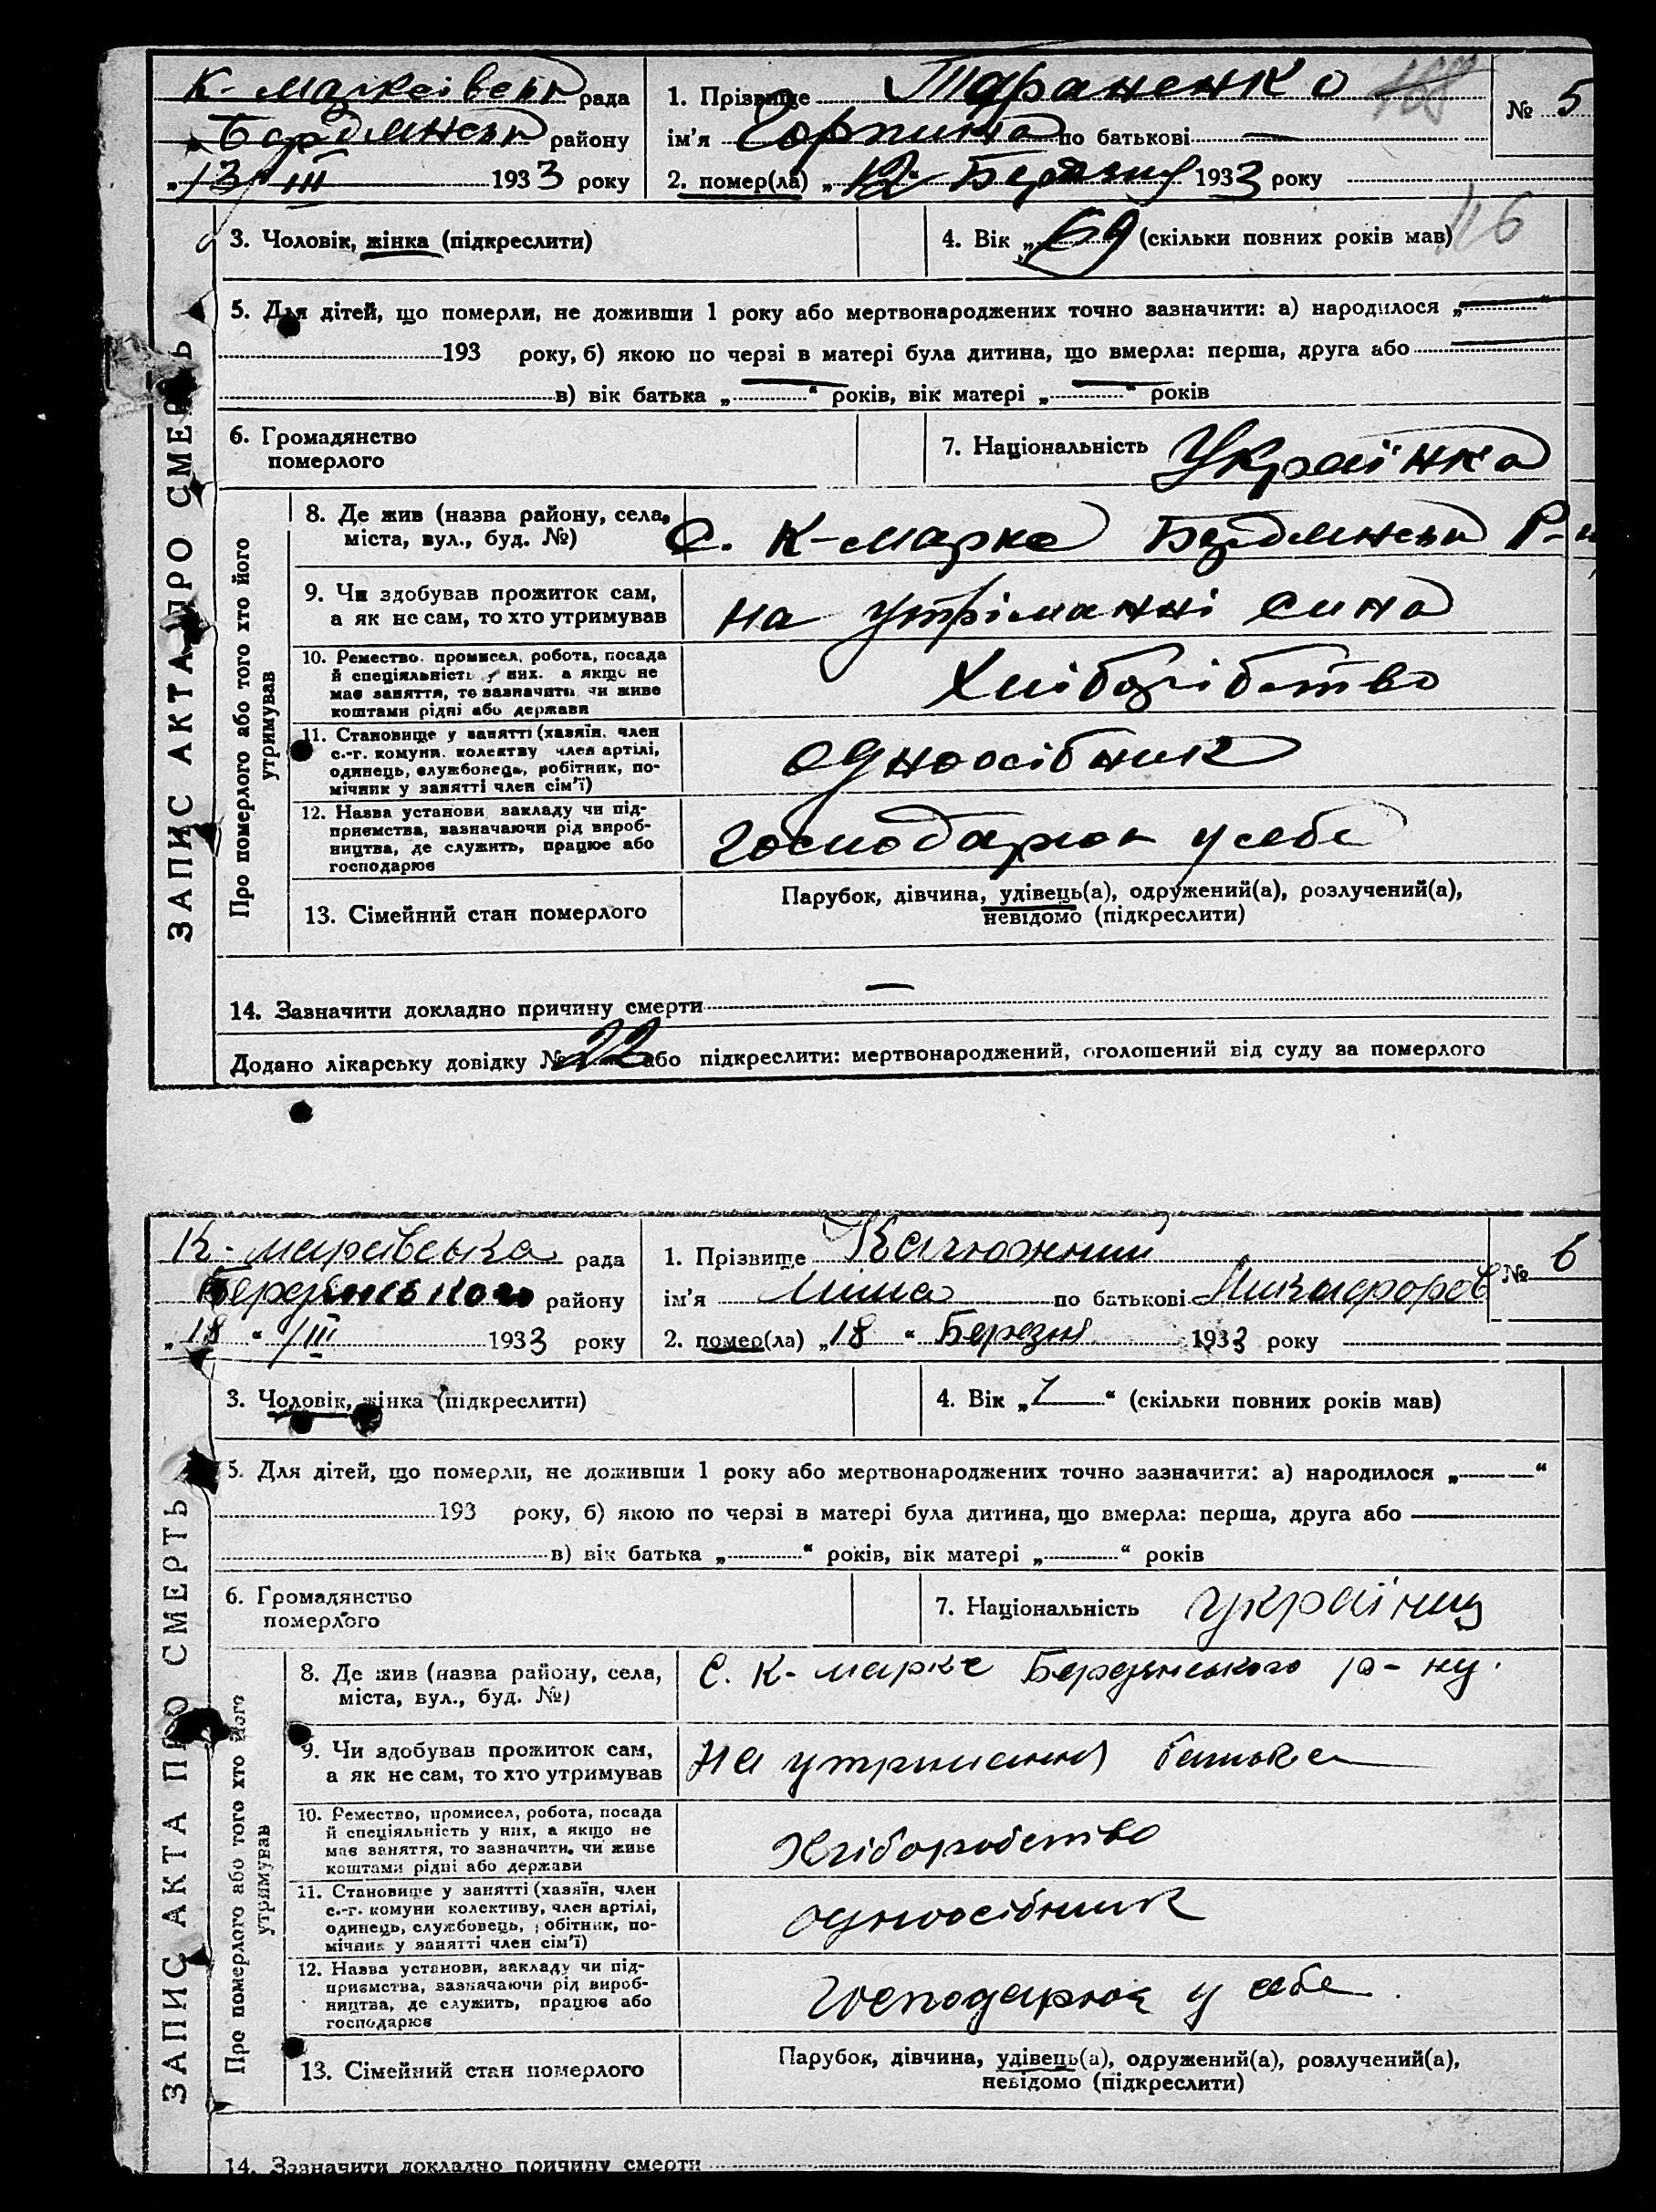 К- марксівськ рада
Бердянськ району
„13" III 1933 року
1. Прізвище Тараненко
ім'я Горпина по батькові —
2. помер(ла) „12" Березня 1933 року
№ 5
3. Чоловік, жінка (підкреслити)
4. Вік „69" (скільки повних років мав)
116
5. Для дітей, що померли, не доживши 1 року або мертвонароджених точно зазначити: а) народилося „—"
193 року, б) якою по черзі в матері була дитина, що вмерла: перша, друга або —
в) вік батька „—" років, вік матері „—" років
6. Громадянство
померлого
7. Національність Українка
ЗАПИС АКТА ПРО СМЕРТЬ
Про померлого або того хто його
утримував
8. Де жив (назва району, села,
міста, вул., буд. №)
С. К-маркс Бердянськ Р-н
9. Чи здобував прожиток сам,
а як не сам, то хто утримував
на утріманні сина
10. Ремество, промисел, робота, посада
й спеціяльність у них, а якщо не
має заняття, то зазначити чи живе
коштами рідні або держави
Хліборібство
11. Становище у занятті (хазяїн, член
с.-г. комуни, колективу член артілі,
одинець, службовець, робітник, по-
мічник у занятті член сім'ї)
одноосібник
12. Назва установи, закладу чи під-
приємства, зазначаючи рід вироб-
ництва, де служить, працює або
господарює
господарює у себе
13. Сімейний стан померлого
Парубок, дівчина, удівець(а), одружений(а), розлучений(а),
невідомо (підкреслити)
14. Зазначити докладно причину смерти —
Додано лікарську довідку № 22 або підкреслити: мертвонароджений, оголошений від суду за померлого
К- марксівська рада
Бердянського району
„18" III 1933 року
1. Прізвище Калюжний
ім'я Міша по батькові Никифоров
2. помер(ла) „18" Березня 1933 року
№ 6
3. Чоловік, жінка (підкреслити)
4. Вік „1" (скільки повних років мав)
5. Для дітей, що померли, не доживши 1 року або мертвонароджених точно зазначити: а) народилося „—"
193 року, б) якою по черзі в матері була дитина, що вмерла: перша, друга або —
в) вік батька „" років, вік матері „" років
6. Громадянство
померлого
7. Національність українц
ЗАПИС АКТА ПРО СМЕРТЬ
Про померлого або того хто його
утримував
8. Де жив (назва району, села,
міста, вул., буд. №)
С. К- маркс Бердянського р-ну.
9. Чи здобував прожиток сам,
а як не сам, то хто утримував
на утриманні батька
10. Ремество, промисел, робота, посада
й спеціяльність у них, а якщо не
має заняття, то зазначити, чи живе
коштами рідні або держави
Хліборобство
11. Становище у занятті (хазяїн, член
с.-г. комуни колективу, член артілі,
одинець, службовець, робітник, по-
мічник у занятті член сім'ї)
одноосібник
12. Назва установи, закладу чи під-
приємства, зазначаючи рід вироб-
ництва, де служить, працює або
господарює
господарює у себе.
13. Сімейний стан померлого
Парубок, дівчина, удівець(а), одружений(а), розлучений(а),
невідомо (підкреслити)
14. Зазначити докладно причину смерти